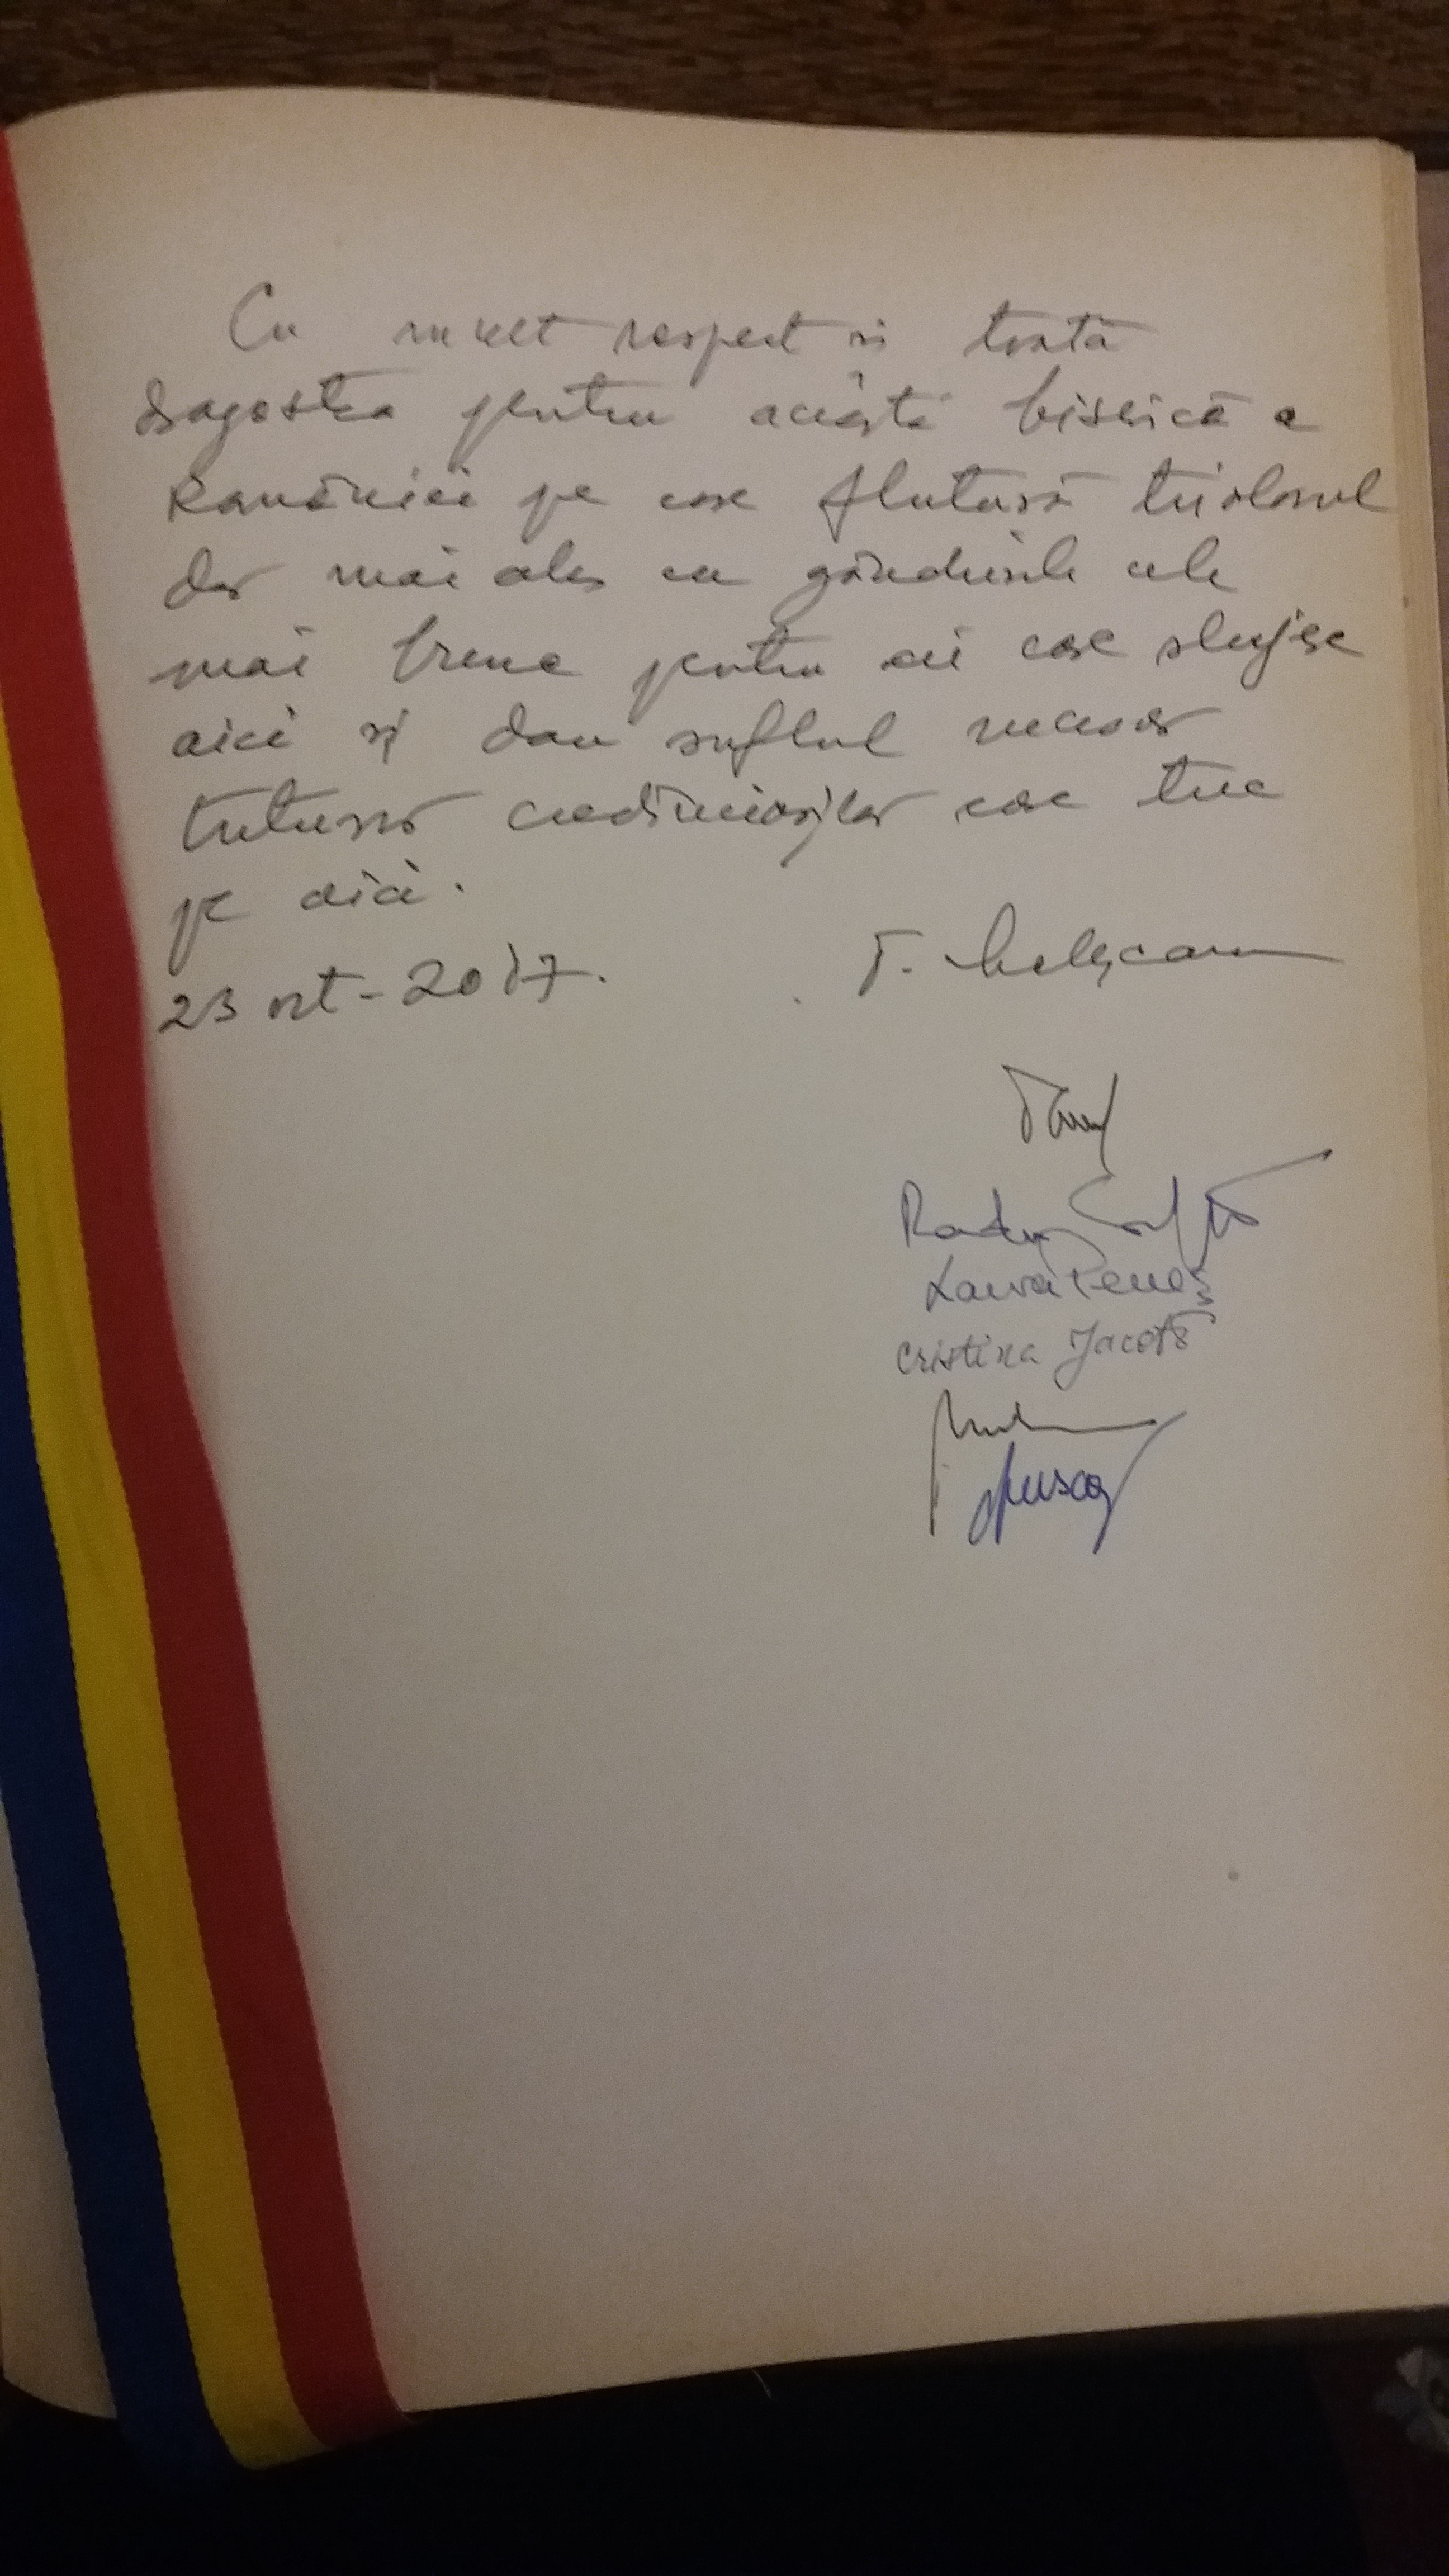 Cu mult respect si toată
dragostea pentru această biserică a
României pe care flutură tricolorul
dar mai ales cu gândurile cele
mai bune pentru cei care slujesc
aici și dau sufletul necesar
tuturor credincioșilor care trec
pe aici.
23 oct - 2017.
T. Meleșcanu
Radu
Laura Peneș
Cristina Jacotă